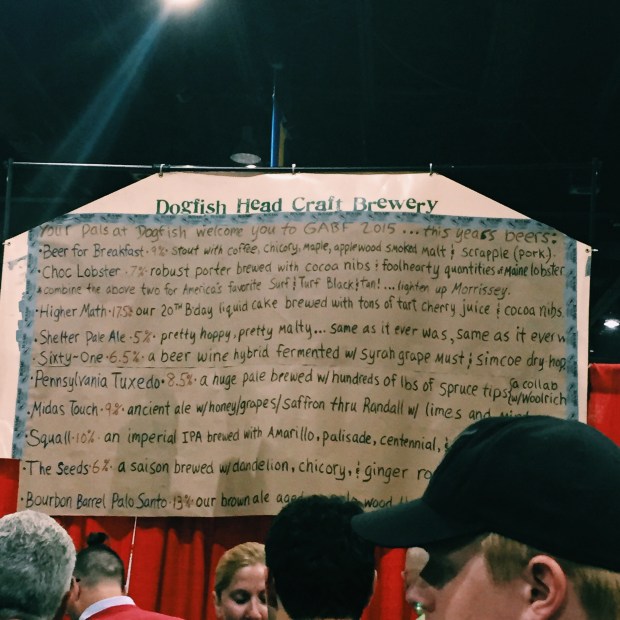 Dogfish Head Craft Brewery
Your pals at Dogfish welcome you to GABF 2015 ... this years beers:
• Beer for Breakfast • 9% stout with coffee, chicory, maple, applewood smoked malt & scrapple (pork).
• Choc Lobster • 7% robust porter brewed with cocoa nibs & foolhearty quantities of Maine lobster
* combine the above two for America's favorite Surf & Turf Black & Tan! ... lighten up Morrissey.
• Higher Math • 17.5% our 20TH B'day liquid cake brewed with tons of tart cherry juice & cocoa nibs.
• Shelter Pale Ale • 5% pretty hoppy, pretty malty... same as it ever was, same as it ever w
• Sixty-One • 6.5% • a beer wine hybrid fermented w/ Syrah grape Must & Simcoe dry hop
• Pennsylvania Tuxedo • 8.5% • a huge pale brewed w/ hundreds of lbs of spruce tips {a collab w/Woolrich
• Midas Touch • 9% • ancient ale w/honey/grapes/saffron thru Randall w/ limes and
• Squall • 10% • an imperial IPA brewed with Amarillo, palisade, centennial, &
• The Seeds • 6% • a saison brewed w/dandelion, chicory, & ginger
• Bourbon Barrel Palo Santo • 13% • our brown ale wood